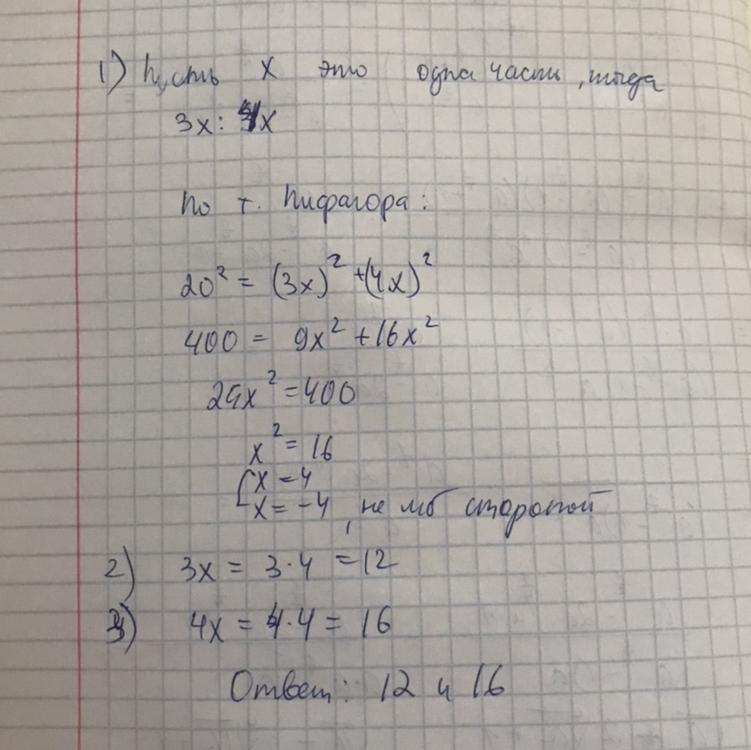 1) Пусть x это одна часть, тогда
3x : 4x
По т. Пифагора:
20² = (3x)² + (4x)²
400 = 9x² + 16x²
25x² = 400
x² = 16
[x = 4
x = -4, не мб стороной
2) 3x = 3·4 = 12
3) 4x = 4·4 = 16
Ответ: 12 и 16